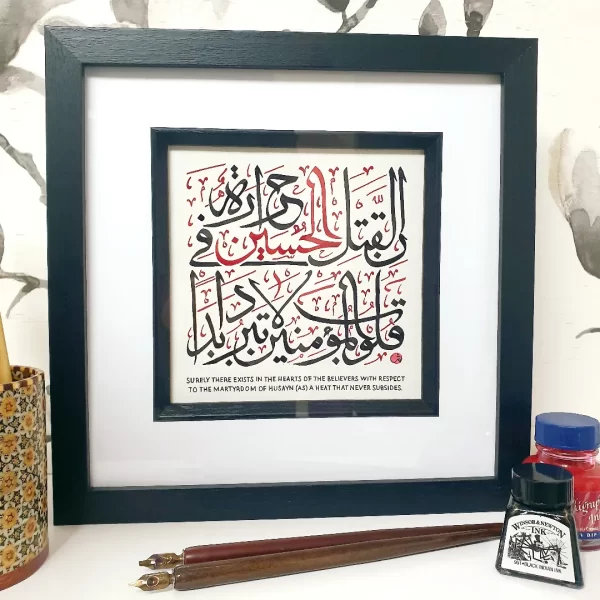 إن لقتل الحسين حرارة في
قلوب المؤمنين لا تبرد أبدا
SURELY THERE EXISTS IN THE HEARTS OF THE BELIEVERS WITH RESPECT
TO THE MARTYRDOM OF HUSAYN (AS) A HEAT THAT NEVER SUBSIDES.
WINSOR & NEWTON
INK
951•BLACK INDIAN INK
DIP